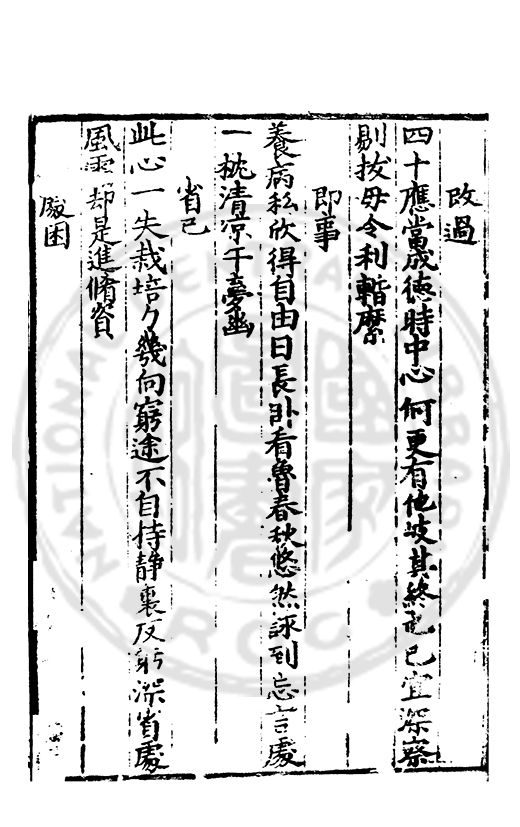 改過
四十應當成德時中心何更有他岐其終也已宜深察
剔拔毋令利輕縻
即事
養病私欣得自由日長卧看魯春秋悠然諑到忘言處
一枕清凉千夢幽
省己
此心一失栽培力幾向窮途不自持靜裏反躬深省處
風雪却是進脩資
處困